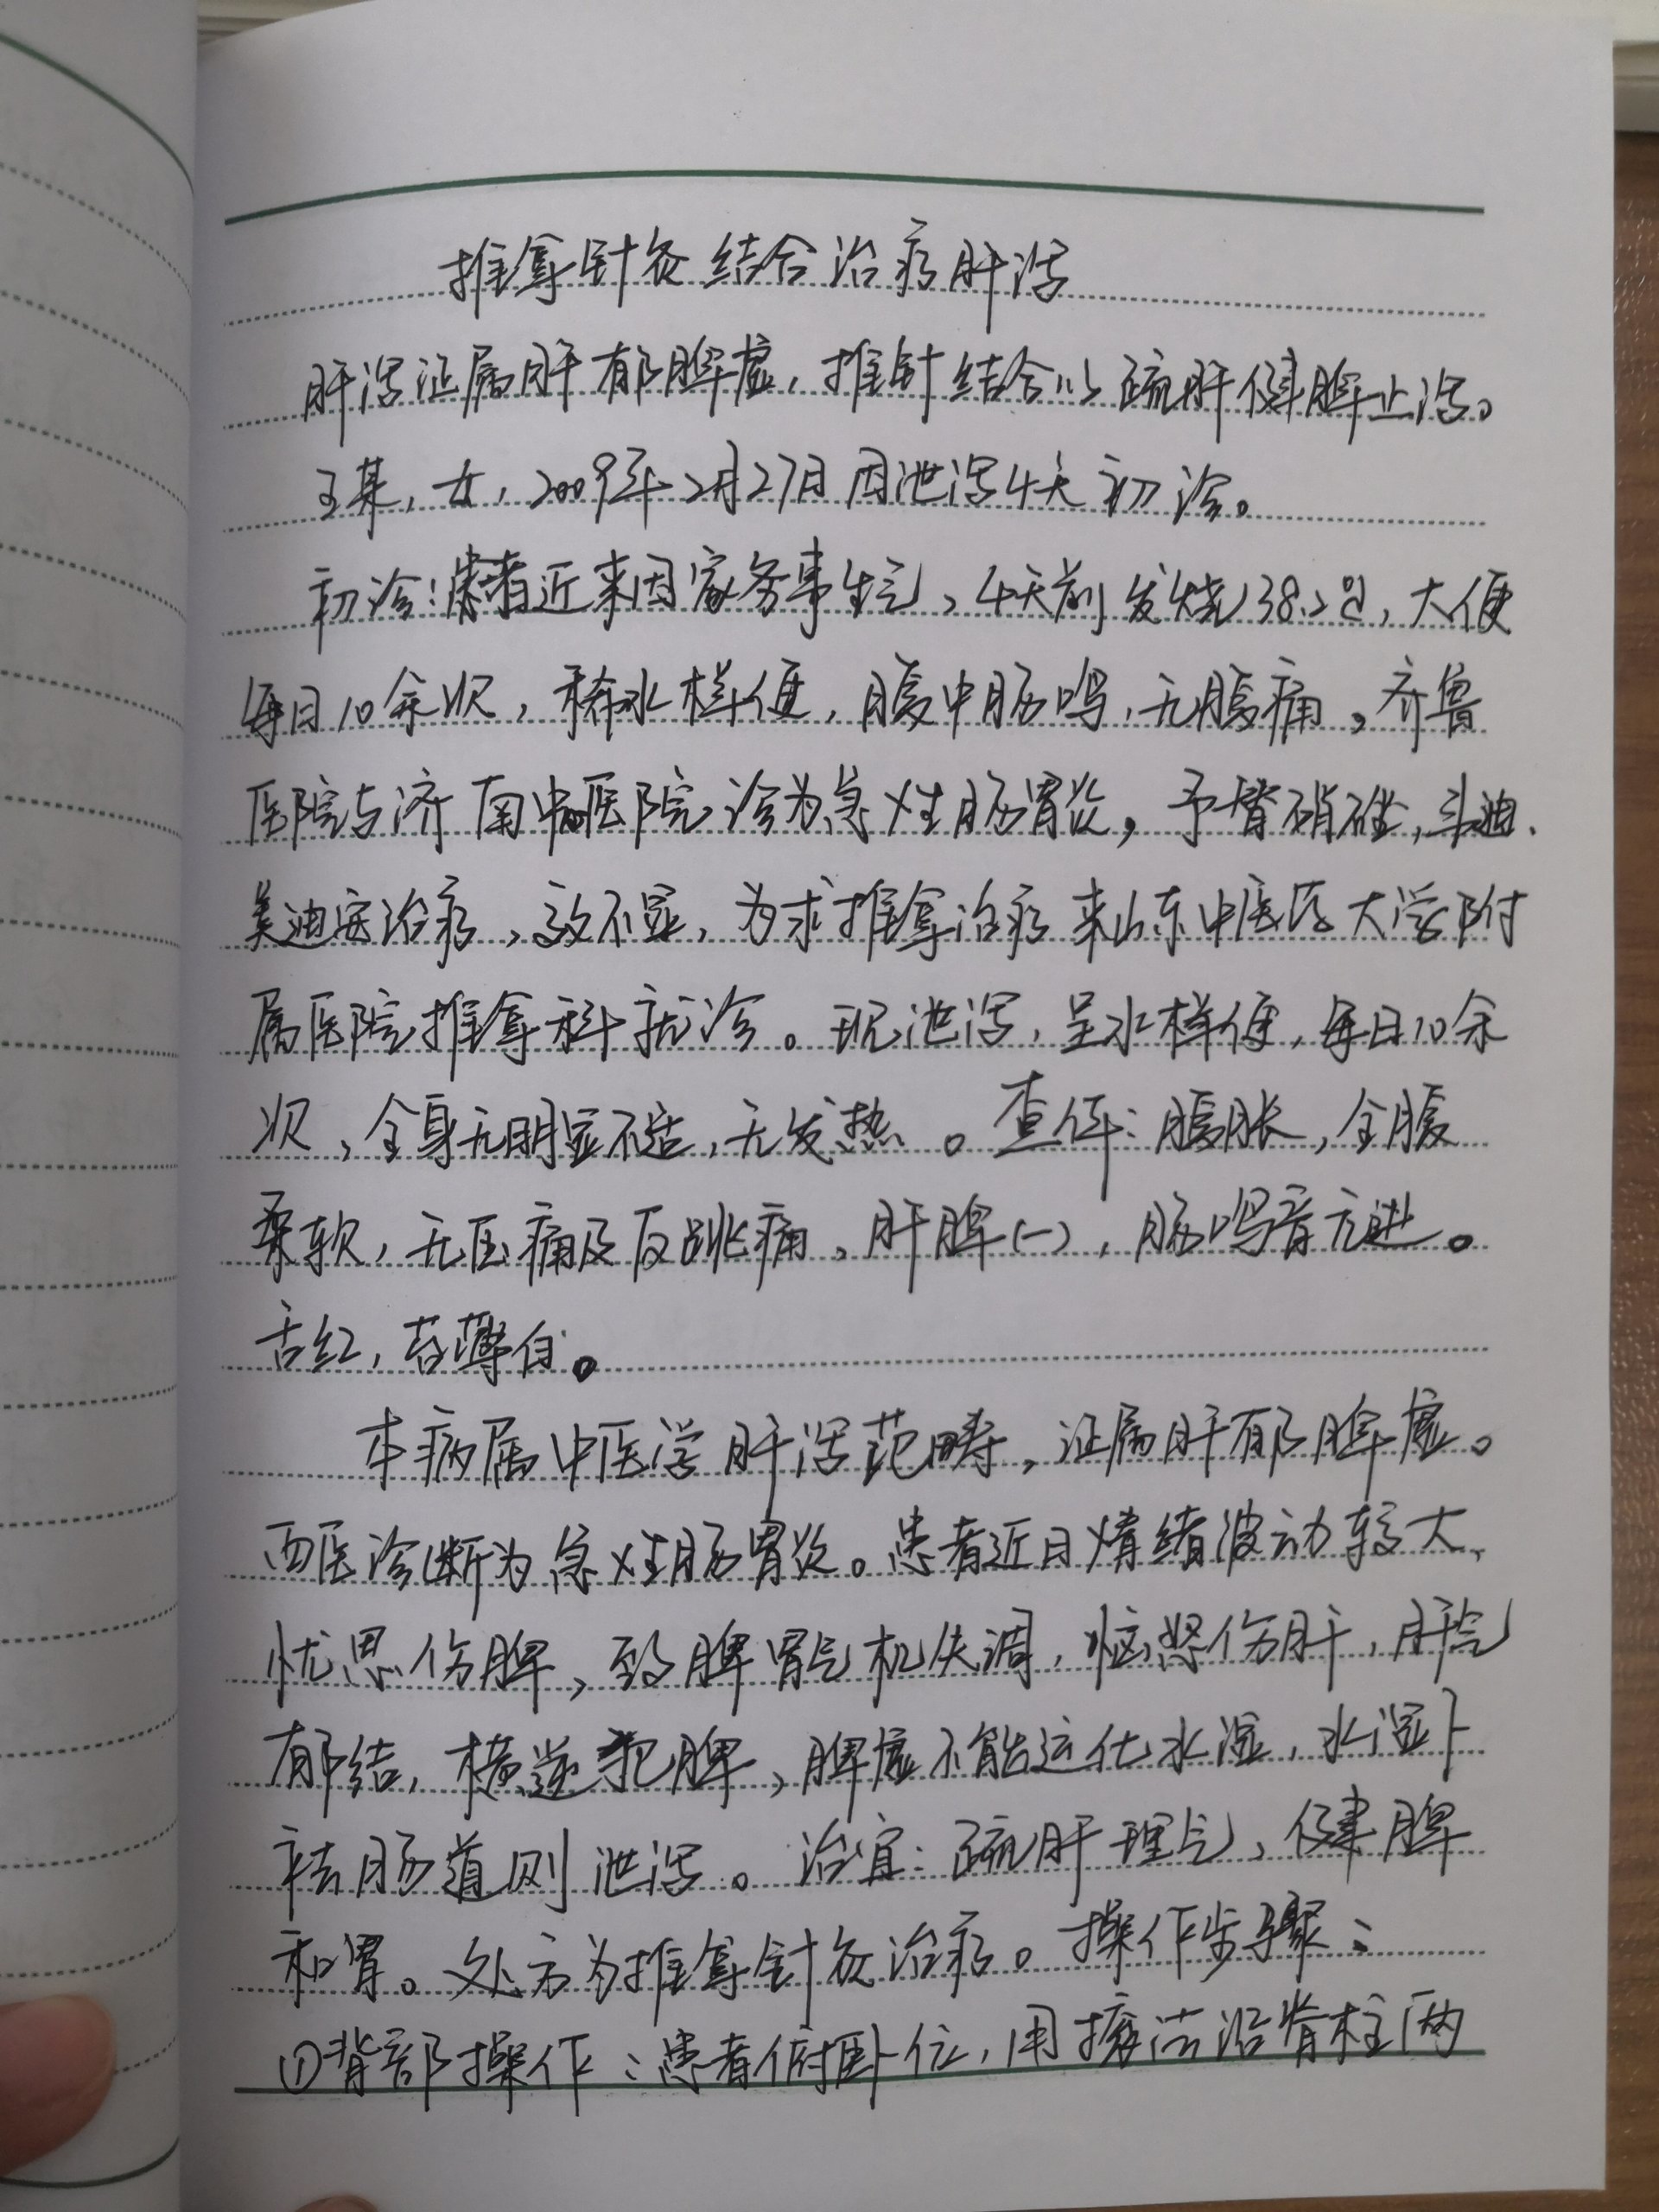 推拿针灸结合治疗肝泻
肝泻证属肝郁脾虚,推针结合以疏肝健脾止泻。
王某,女,2009年2月27日因泄泻4天初诊。
初诊:患者近来因家务事生气,4天前发烧38.2℃,大便
每日10余次,稀水样便,腹中肠鸣,无腹痛。齐鲁
医院与济南中医院诊为急性肠胃炎,予替硝唑,斗迪、
美迪安治疗,效不显,为求推拿治疗来山东中医药大学附
属医院推拿科就诊。现泄泻,呈水样便,每日10余
次,全身无明显不适,无发热。查体:腹胀,全腹
柔软,无压痛及反跳痛,肝脾(-),肠鸣音亢进。
舌红,苔薄白。
本病属中医学肝泻范畴,证属肝郁脾虚。
西医诊断为急性肠胃炎。患者近日情绪波动较大,
忧思伤脾,致脾胃气机失调,恼怒伤肝,肝气
郁结,横逆犯脾,脾虚不能运化水湿,水湿下
袪肠道则泄泻。治宜:疏肝理气,健脾
和胃。处方为推拿针灸治疗。操作步骤:
①背部操作:患者俯卧位,用㨰法沿脊柱两